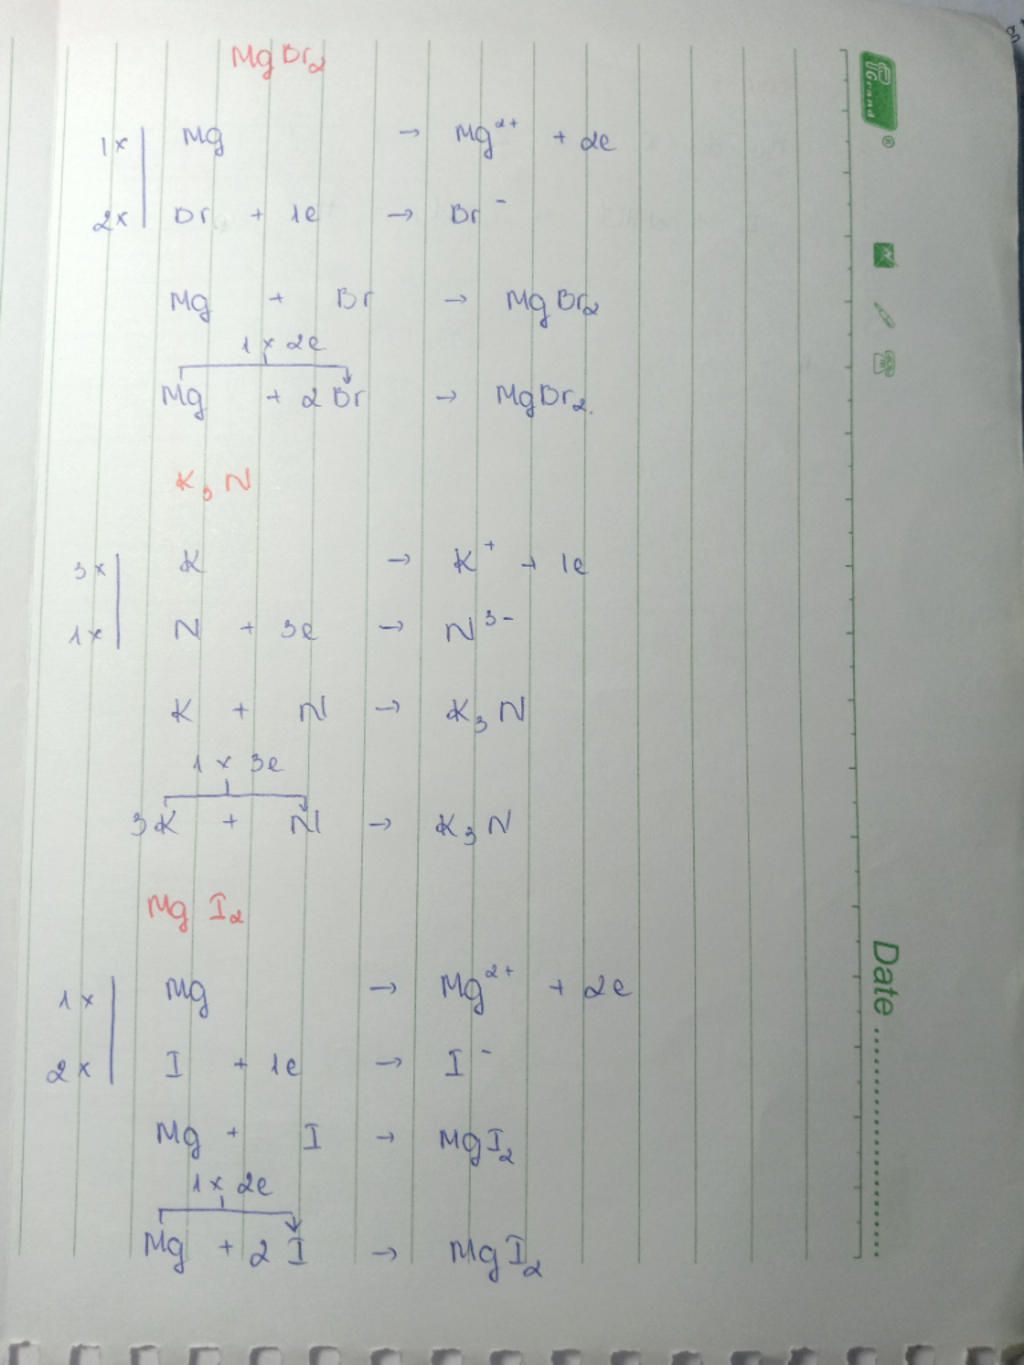 MgBr₂
1x | Mg → Mg²⁺ + 2e
2x | Br + 1e → Br⁻
Mg + Br → MgBr₂
1 x 2e
Mg + 2Br → MgBr₂.
K₃N
3x | K → K⁺ + 1e
1x | N + 3e → N³⁻
K + N → K₃N
1 x 3e
3K + N → K₃N
MgI₂
1x | Mg → Mg²⁺ + 2e
2x | I + 1e → I⁻
Mg + I → MgI₂
1x 2e
Mg + 2I → MgI₂
Grand
®
Date ................